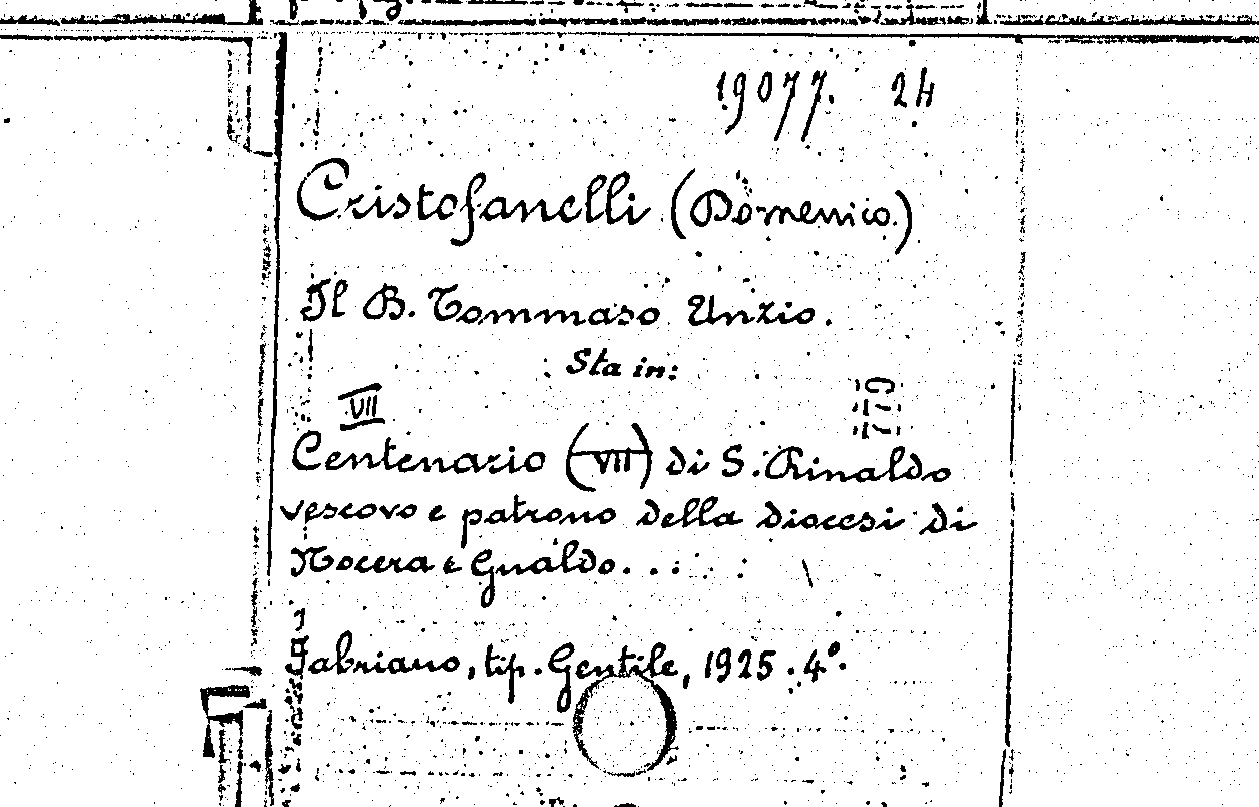 19077. 24
Cristofanelli (Domenico)
Il B. Tommaso Unzio.
Sta in:
VII
Centenario (VII) di S. Rinaldo
vescovo e patrono della diocesi di
Nocera e Gualdo...
Fabriano, tip. Gentile, 1925. 4°.